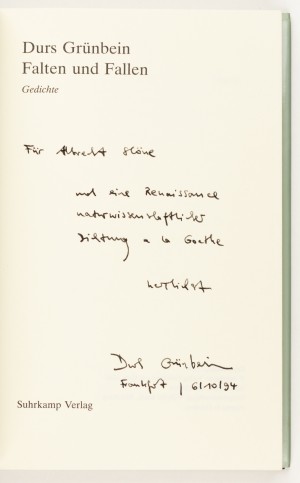 Durs Grünbein
Falten und Fallen
Gedichte
Für Albrecht Schöne
und eine Renaissance
naturwissenschaftlicher
Dichtung a la Goethe
herzlichst
Durs Grünbein
Frankfurt, 6/10/94
Suhrkamp Verlag